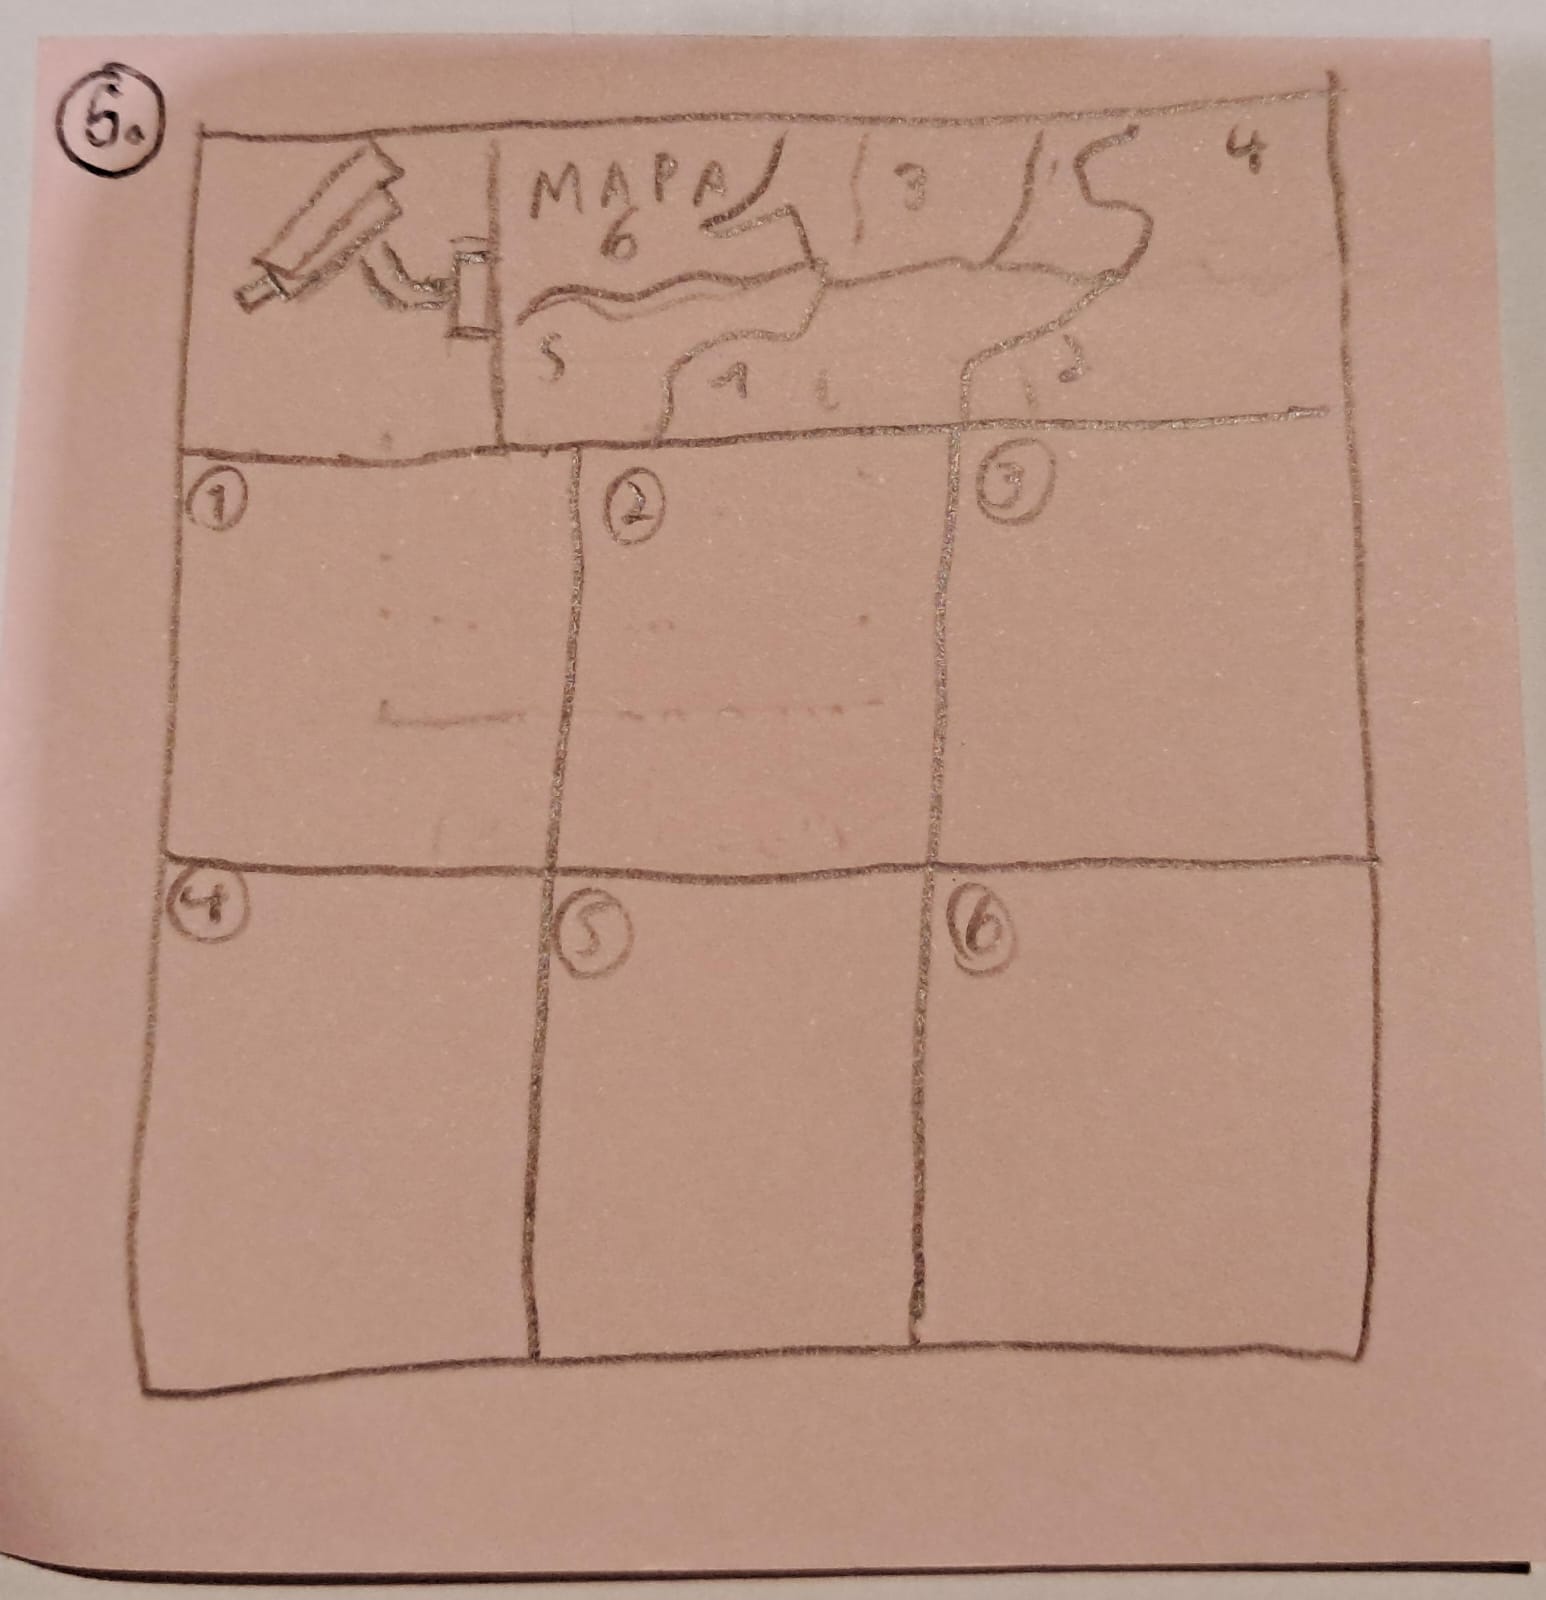 5.
MAPA 3 4
6
5 1 2
1 2 3
4 5 6